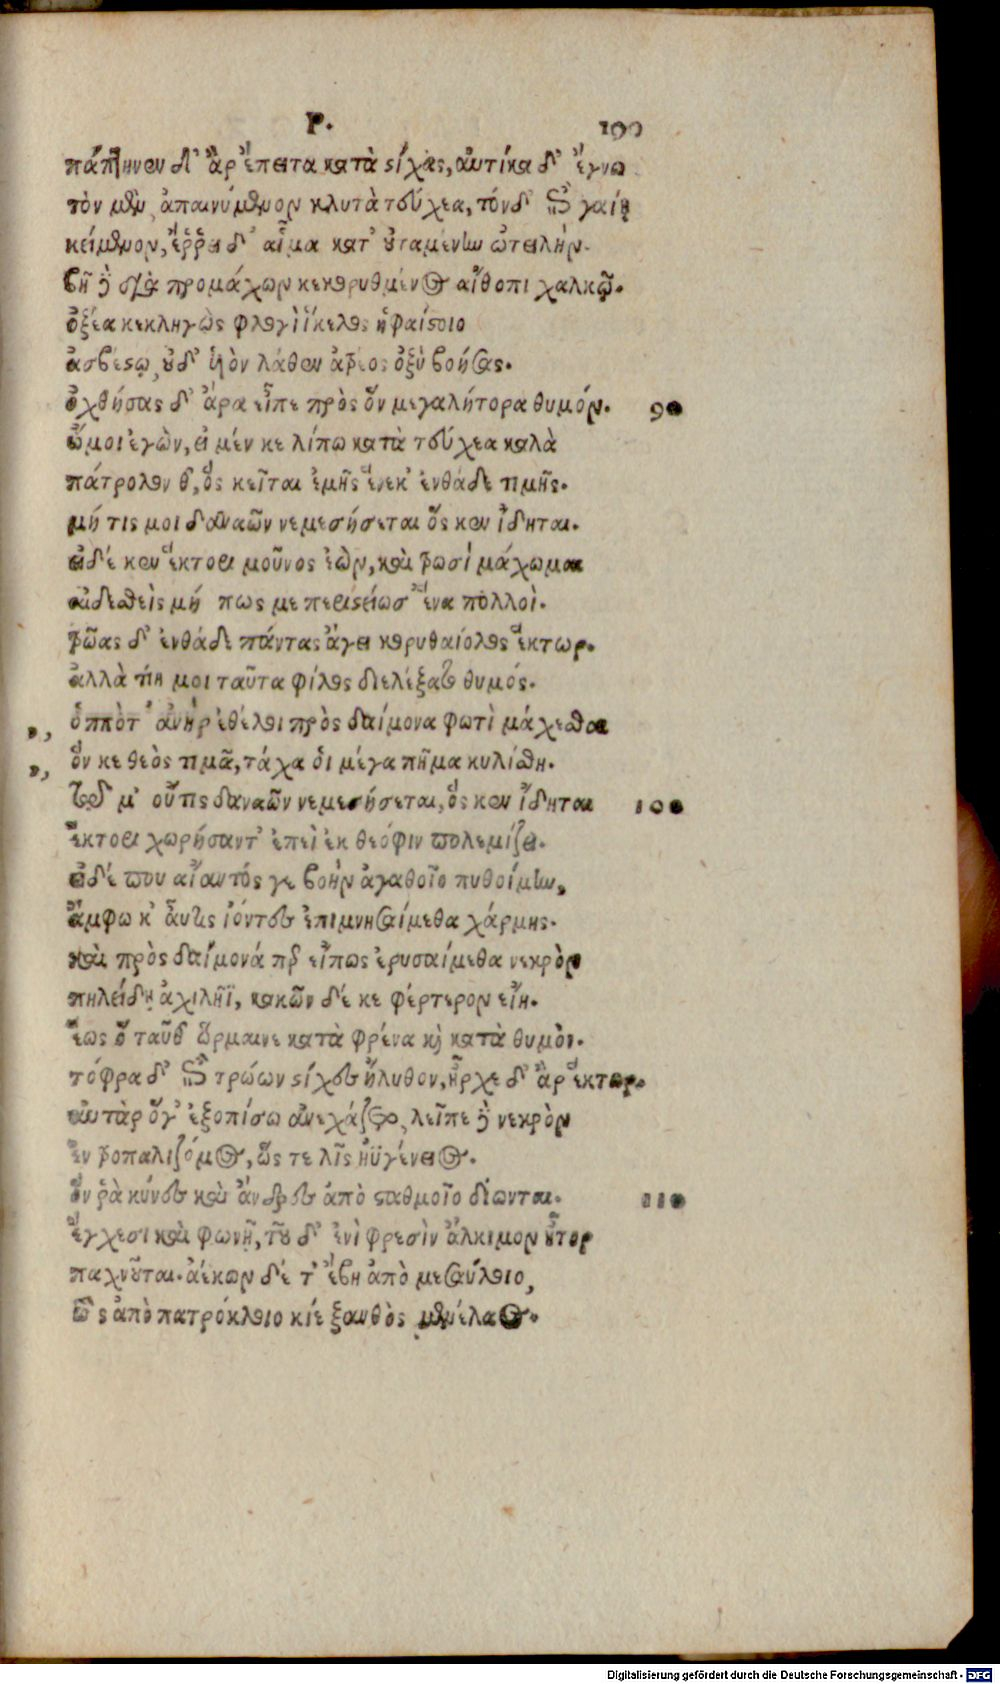 Ρ. 199
πάπτηνεν δ' ἂρ ἔπειτα κατὰ στίχας, αὐτίκα δ' ἔγνω
τὸν μὲν ἀπαινύμενον κλυτὰ τεύχεα, τόνδ' ἐπὶ γαίῃ
κείμενον, ἔῤῥει δ' αἷμα κατ' οὐταμένην ὠτειλήν.
βῆ δὲ διὰ προμάχων κεκορυθμένος αἴθοπι χαλκῷ.
ὀξέα κεκληγὼς φλογὶ ἴκελος ἡφαίστοιο
ἀσβέστῳ, οὐδ' ὑὸν λάθεν ἀτρέος ὀξὺ βοήσας.
ὀχθήσας δ' ἄρα εἶπε πρὸς ὃν μεγαλήτορα θυμόν. 90
ὤμοι ἐγὼν, εἰ μέν κε λίπω κατὰ τεύχεα καλὰ
πάτροκλόν θ', ὃς κεῖται ἐμῆς ἕνεκ' ἐνθάδε τιμῆς.
μή τις μοι δαναῶν νεμεσήσεται ὅς κεν ἴδηται.
εἰ δέ κεν ἕκτορι μοῦνος ἐὼν, καὶ τρωσὶ μάχωμαι
αἰδεσθεὶς μή πως με περιστείωσ' ἕνα πολλοὶ.
τρῶας δ' ἐνθάδε πάντας ἄγει κορυθαίολος ἕκτωρ.
ἀλλὰ τίη μοι ταῦτα φίλος διελέξατο θυμός.
ὁππὸτ' ἀνὴρ ἐθέλει πρὸς δαίμονα φωτὶ μάχεσθαι
ὅν κε θεὸς τιμᾶ, τάχα οἱ μέγα πῆμα κυλίσθη.
τῷ μ' οὔτις δαναῶν νεμεσήσεται, ὅς κεν ἴδηται 100
ἕκτορι χωρήσαντ' ἐπεὶ ἐκ θεόφιν πολεμίζει.
εἰ δέ που αἴαντός γε βοὴν ἀγαθοῖο πυθοίμην,
ἄμφω κ' αὖτις ἰόντες ἐπιμνησαίμεθα χάρμης.
καὶ πρὸς δαίμονά περ εἴπως ἐρυσαίμεθα νεκρὸν
πηλείδῃ ἀχιλῆϊ, κακῶν δέ κε φέρτερον εἴη.
ἕως ὃ ταῦθ' ὥρμαινε κατὰ φρένα καὶ κατὰ θυμὸν.
τόφρα δ' ἐπὶ τρώων στίχες ἤλυθον, ἦρχε δ' ἂρ ἕκτωρ.
αὐτὰρ ὅγ' ἐξοπίσω ἀνεχάζετο, λεῖπε δὲ νεκρὸν
ἐντροπαλιζόμενος, ὥς τε λῖς ἠϋγένειος.
ὅν ῥὰ κύνες καὶ ἄνδρες ἀπὸ σταθμοῖο δίωνται. 110
ἔγχεσι καὶ φωνῇ, τοῦ δ' ἐνὶ φρεσὶν ἄλκιμον ἦτορ
παχνοῦται. ἀέκων δέ τ' ἔβη ἀπὸ μεσαύλοιο,
ὣς ἀπὸ πατρόκλοιο κίε ξανθὸς μενέλαος.
Digitalisierung gefördert durch die Deutsche Forschungsgemeinschaft - DFG